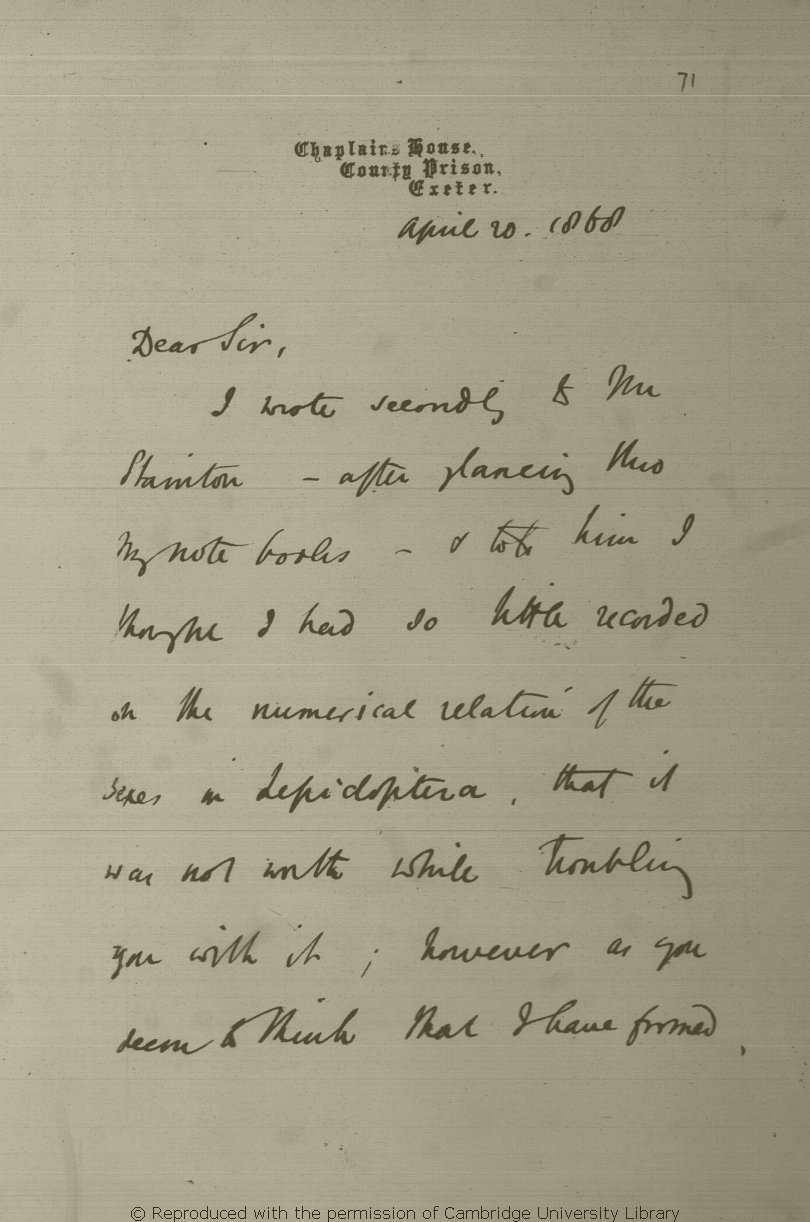 71
Chaplain's House,
County Prison,
Exeter.
April 20. 1868
Dear Sir,
I wrote secondly to Mr
Stainton – after glancing thro
my note books – & told him I
thought I had so little recorded
on the numerical relation of the
sexes in Lepidoptera, that it
was not worth while troubling
you with it; however as you
seem to think that I have formed,
© Reproduced with the permission of Cambridge University Library